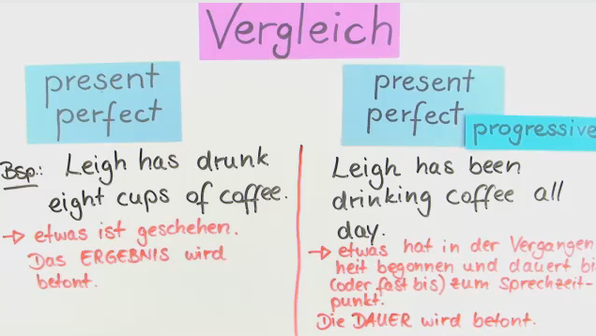 Vergleich
present
perfect
Bsp.: Leigh has drunk
eight cups of coffee.
→ etwas ist geschehen.
Das ERGEBNIS wird
betont.
present
perfect
progressive
Leigh has been
drinking coffee all
day.
→ etwas hat in der Vergangen-
heit begonnen und dauert bis
(oder fast bis) zum Sprechzeit-
punkt.
Die DAUER wird betont.